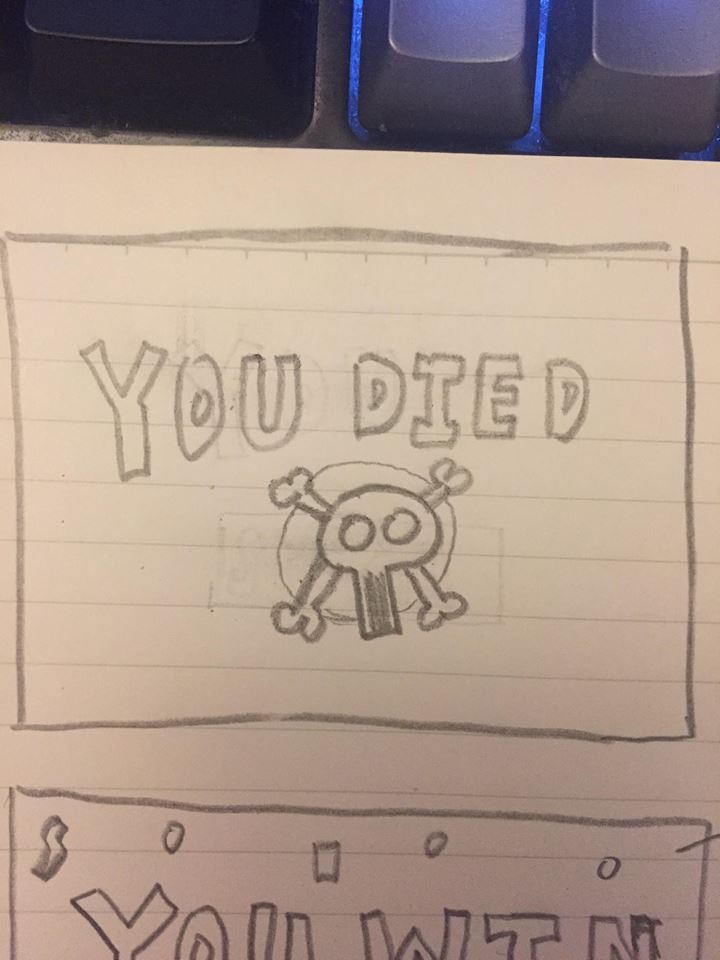 YOU DIED
YOU WIN